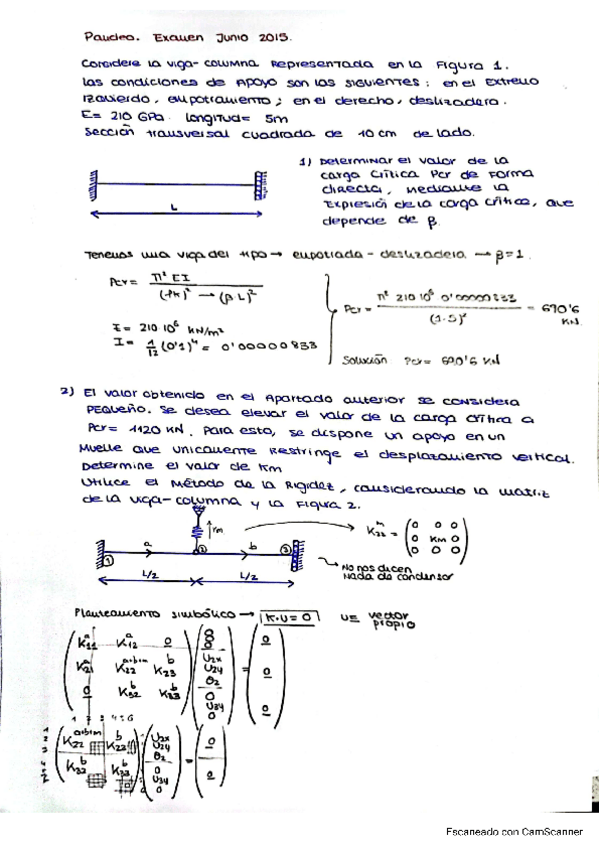 Pandeo. Examen Junio 2015.
Considere la viga-columna representada en la Figura 1.
Las condiciones de apoyo son las siguientes: en el extremo
izquierdo, empotramiento; en el derecho, deslizadera.
E= 210 GPa. Longitud= 5m
Sección transversal cuadrada de 10 cm de lado.
1) Determinar el valor de la
carga crítica Pcr de forma
directa, mediante la
expresión de la carga crítica, que
depende de β.
L
Tenemos una viga del tipo → empotrada-deslizadera → β=1.
Pcr = π² EI / (βL)²
Pcr = π² 210 10⁶ 0'00000833 / (1·5)² = 690'6 KN.
E = 210 10⁶ KN/m²
I = 1/12 (0'1)⁴ = 0'00000833
Solución Pcr= 690'6 KN
2) El valor obtenido en el apartado anterior se considera
pequeño. Se desea elevar el valor de la carga crítica a
Pcr= 1120 KN. Para esto, se dispone un apoyo en un
muelle que unicamente restringe el desplazamiento vertical.
Determine el valor de Km
Utilice el método de la Rigidez, considerando la matriz
de la viga-columna y la Figura 2.
a b
1 2 3
L/2 L/2
K22 m = (0 0 0
0 Km 0
0 0 0)
No nos dicen
nada de condensar
Planteamiento simbólico → K·U=0 U= vector
propio
K11 a K12 a 0
K21 a K22 a+b+m K23 b
0 K32 b K33 b
0 0 0 U2x U2y θ2 0 U3y 0 = 0 0 0
1 2 3 4 5 6
K22 a+b+m K23 b
K32 b K33 b
U2x U2y θ2 0 U3y 0 = 0 0
Escaneado con CamScanner